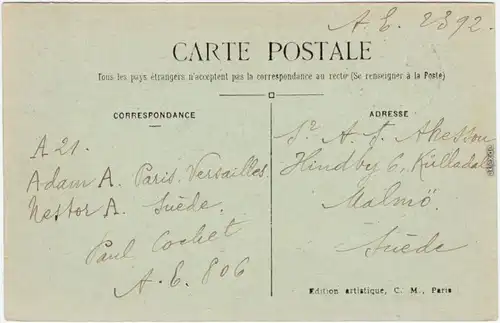 A. E. 2392.
CARTE POSTALE
Tous les pays étrangers n'acceptent pas la correspondance au recto (Se renseigner à la Poste)
CORRESPONDANCE
A 21.
Adam A. Paris. Versailles.
Nestor A. Suède.
Paul Cochet
A. E. 806
ADRESSE
Sr A. F. Akesson
Hindby 6, Kulladal
Malmö.
Suède
Edition artistique, C. M., Paris